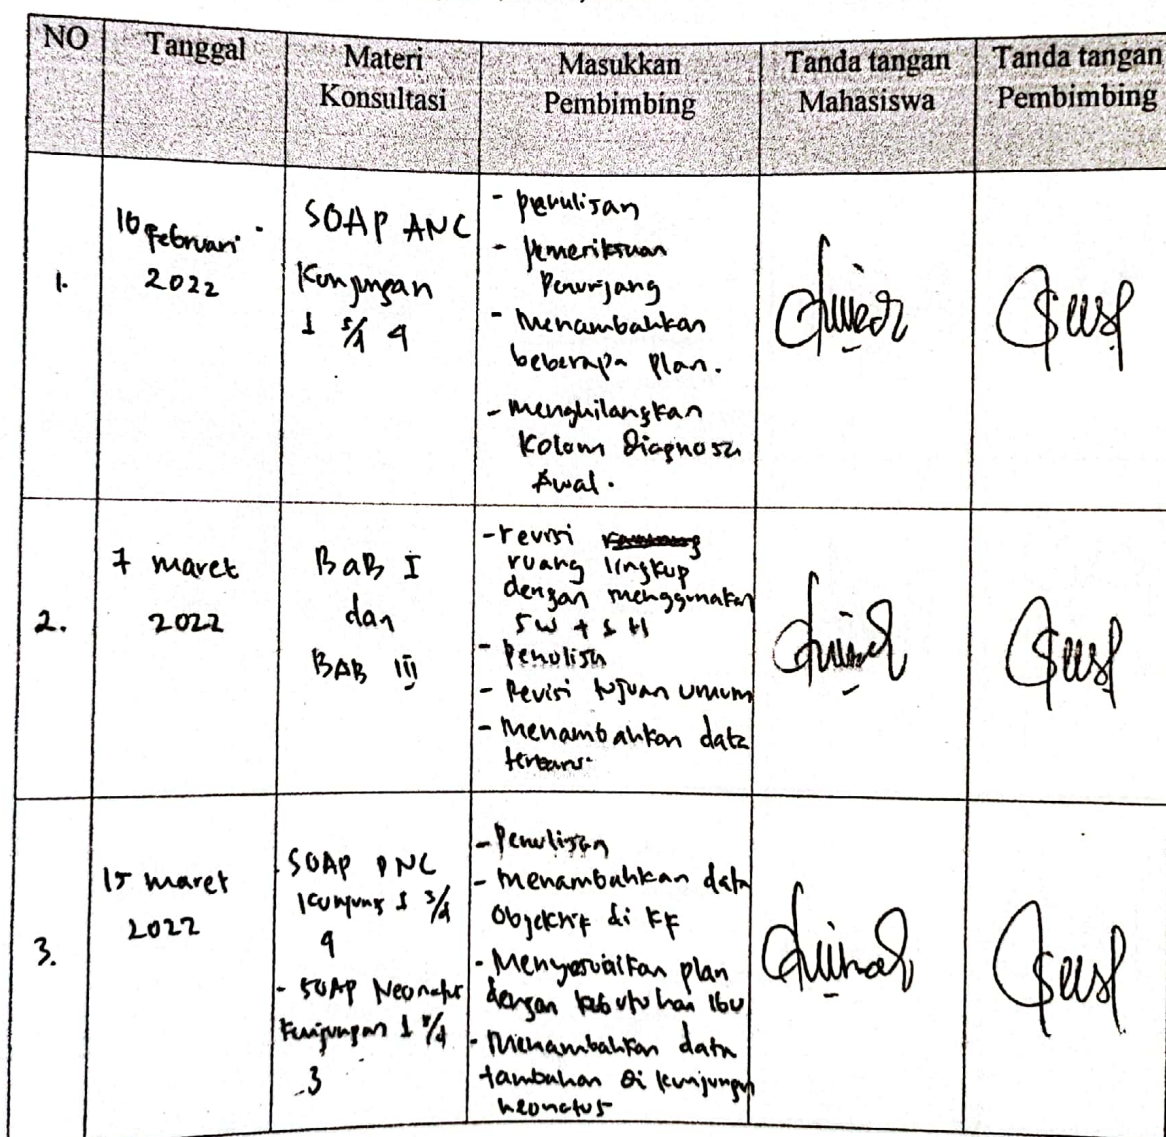 NO Tanggal Materi Konsultasi Masukkan Pembimbing Tanda tangan Mahasiswa Tanda tangan Pembimbing
1.
10 Februari
2022
SOAP ANC
Kunjungan
1 s/d 4
- penulisan
- pemeriksaan
Penunjang
- Menambahkan
beberapa plan.
- menghilangkan
Kolom Diagnosa
Awal.
2.
7 maret
2022
BaB I
dan
BAB III
- revisi
ruang lingkup
dengan menggunakan
5W + 1H
- Penulisn
- Revisi tujuan umum
- Menambahkan data
3.
15 maret
2022
SOAP PNC
Kunjung 1 s/d
4
- SOAP Neonatus
Kunjungan 1 s/d
3
- Penulisan
- menambahkan data
Objektif di KF
- Menyesuaikan plan
dengan kebutuhan Ibu
- Menambahkan data
tambahan di kunjungan
neonatus